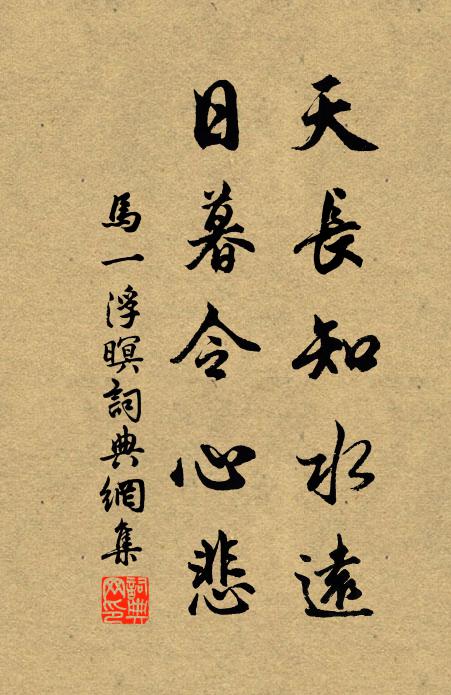 天長知水遠
日暮令心悲
馬一浮暝詞典網集
詞典网印